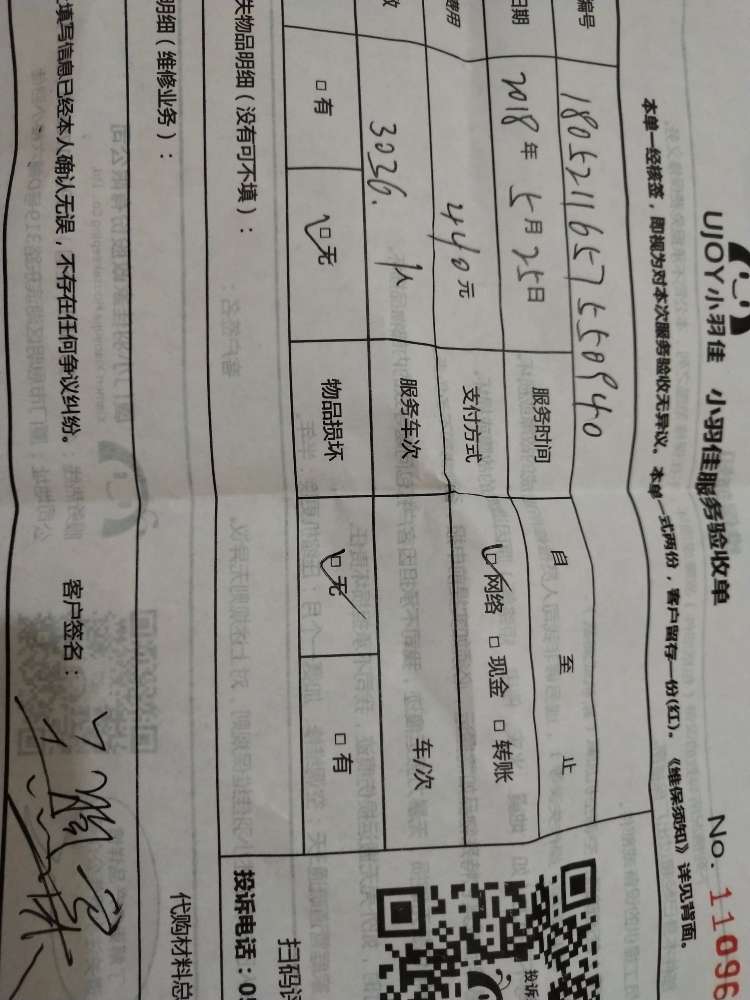 UJOY小羽佳 小羽佳服务验收单 No. 11096
本单一经核签，即视为对本次服务验收无异议。本单一式两份，客户留存一份(红)。《维保须知》详见背面。
编号 180521165755 0940
日期 2018年5月25日 服务时间 自 至 止
费用 440元 支付方式 网络 □现金 □转账
数 3036. 1人 服务车次 车/次
□有 □无 物品损坏 □无 □有
失物品明细（没有可不填）：
投诉
投诉电话：05
扫码
明细（维修业务）：
代购材料总
填写信息已经本人确认无误，不存在任何争议纠纷。 客户签名：